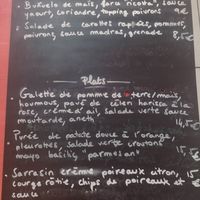 • Burvelo de maïs, faru ricotta, sauce
yaourt, coriandre, topping poivrons 9€
• Salade de carottes rapées, pommes,
poivrons, sauce madras, grenade 8,5€
Plats
• Galette de pomme de terre/maïs,
houmous, pavé de céleri harissa à la
rose, crème d'ail, salade verte sauce
moutarde, aneth 14,5€
• Purée de patate douce à l'orange,
pleurotes, salade verte croutons
mayo basilic, parmesan 15,5€
• Sarrasin crème poireaux citron, 15
courge rôtie, chips de poireaux et €
sauce